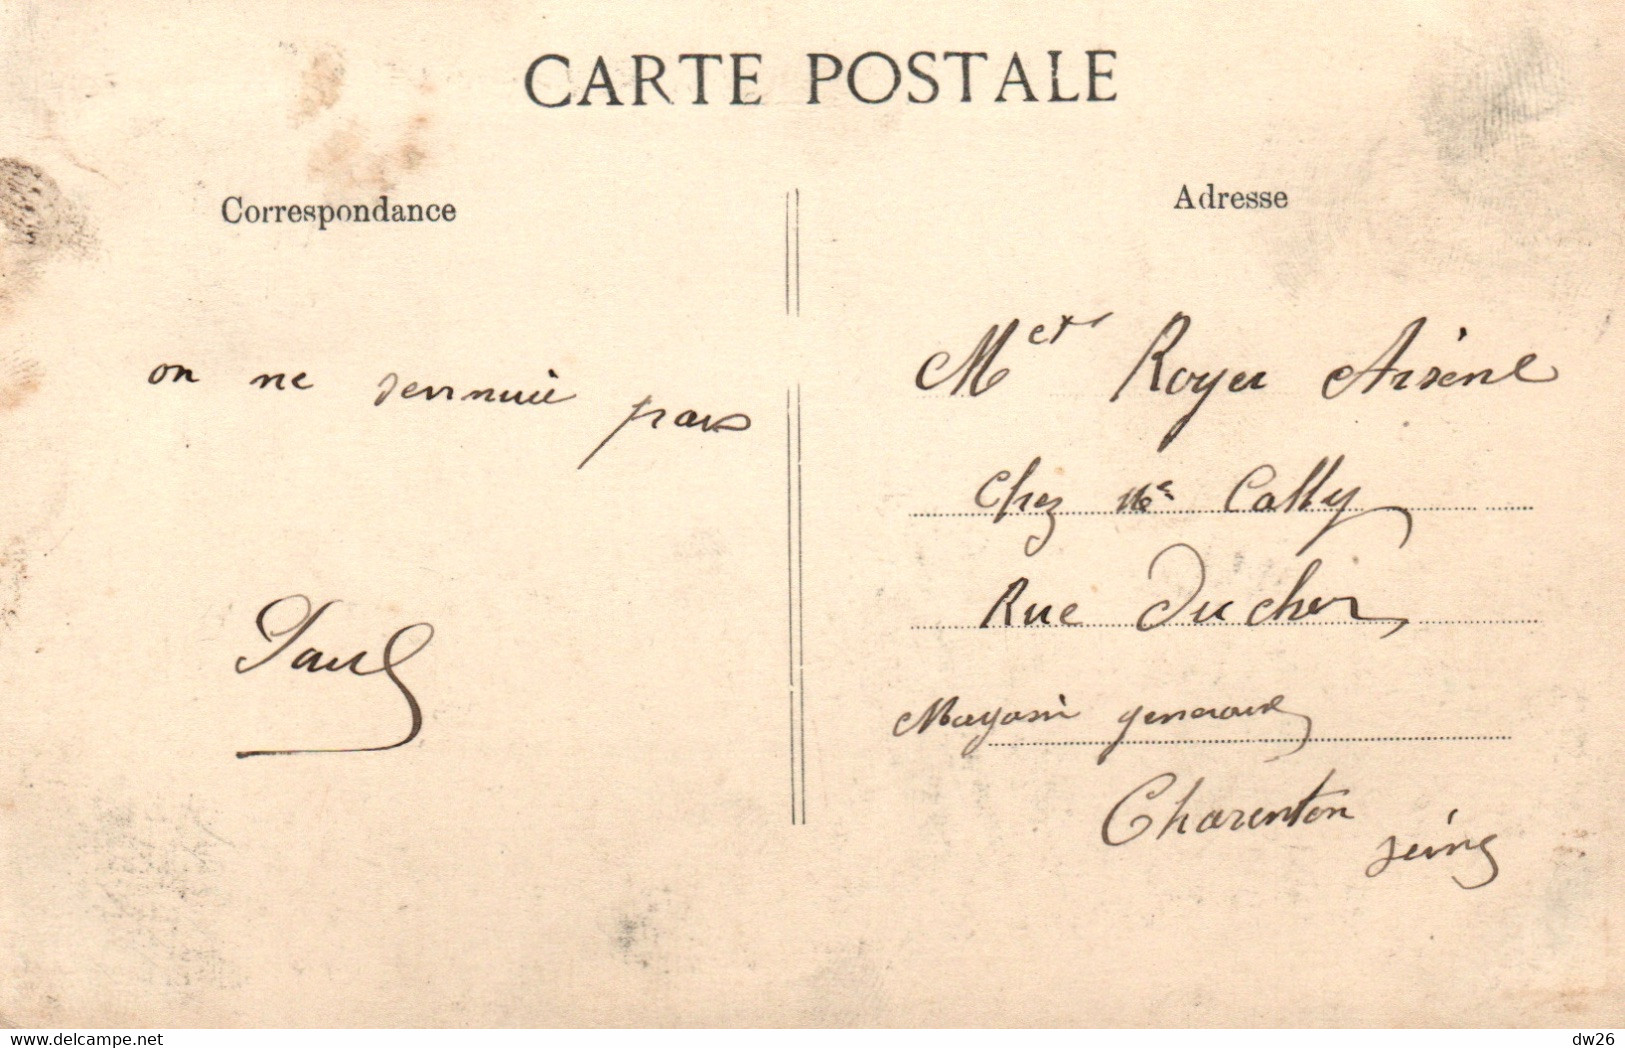 CARTE POSTALE
Correspondance
on ne sennuie pas
Paul
Adresse
Met Royer Arsène
Chez Me Cally
Rue Ducher,
Magasin generaux
Charenton
seine
dw26